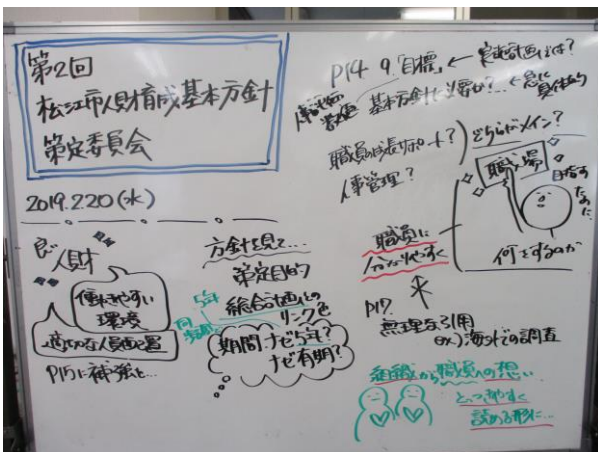 第2回
松江市人財育成基本方針
策定委員会
2019.2.20(水)
良い
人財
働きやすい
環境
適切な人員配置
P15に補強を…
方針を見て…
策定目的
総合計画との
リンク色
5年
同
期間:ナゼ5年?
ナゼ有期?
P14 9.「目標」← 実施計画では?
基本方針に必要か?… ←急に
具体的
職員の成長サポート?
人事管理?
どちらがメイン?
職場
目指す
ために
何をするのか
職員に
分かりやすく
P17.
無理な引用
ex.)海外での調査
組織から職員への想い
とっつきやすく
読める形に…